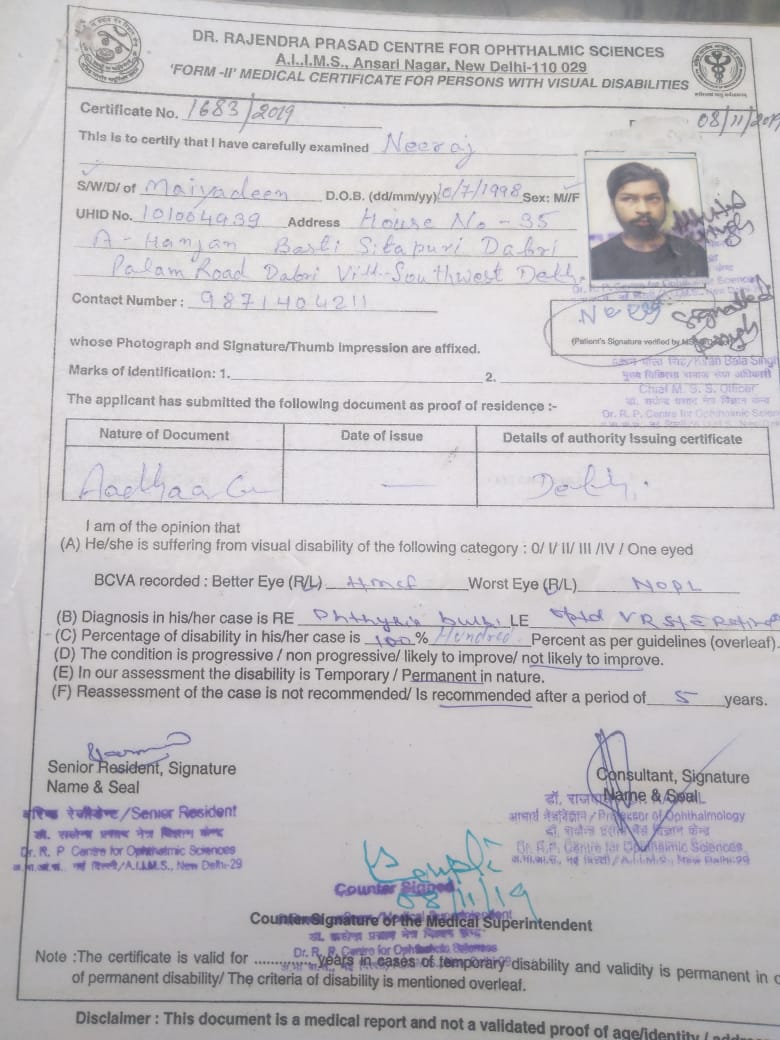 DR. RAJENDRA PRASAD CENTRE FOR OPHTHALMIC SCIENCES
A.I.I.M.S., Ansari Nagar, New Delhi-110 029
'FORM -II' MEDICAL CERTIFICATE FOR PERSONS WITH VISUAL DISABILITIES
Certificate No. 1683/2019
08/11/2019
This is to certify that I have carefully examined Neeraj
S/W/D/ of Maiyadeen D.O.B. (dd/mm/yy) 10/7/1998 Sex: M//F
UHID No. 101004939 Address House No - 35
A- Hanjan Basti Sitapuri Dabri
Palam Road Dabri Vill- Southwest Delhi
Contact Number : 9871404211
Neeraj
(Patient's Signature verified by
whose Photograph and Signature/Thumb Impression are affixed.
Kiran Bala Singh
Marks of identification: 1. 2.
Chief M. S. S. Officer
Dr. R. P. Centre for Ophthalmic Scien
The applicant has submitted the following document as proof of residence :-
Nature of Document Date of issue Details of authority Issuing certificate
Aadhaar — Delhi.
I am of the opinion that
(A) He/she is suffering from visual disability of the following category : 0/ I/ II/ III /IV / One eyed
BCVA recorded : Better Eye (R/L) HMCF Worst Eye (R/L) NOPL
(B) Diagnosis in his/her case is RE Phthysis bulbi LE VR
(C) Percentage of disability in his/her case is 100 % Hundred Percent as per guidelines (overleaf).
(D) The condition is progressive / non progressive/ likely to improve/ not likely to improve.
(E) In our assessment the disability is Temporary / Permanent in nature.
(F) Reassessment of the case is not recommended/ Is recommended after a period of 5 years.
Senior Resident, Signature
Name & Seal
Consultant, Signature
Name & Seal
/Senior Resident
Dr. R. P Centre for Ophthalmic Sciences
/A.I.I.M.S., New Delhi-29
of Ophthalmology
Dr. R.P. Centre for Ophthalmic Sciences
/A.I.I.M.S., New Delhi-29
Counter Signed
08/11/19
Counter Signature of the Medical Superintendent
Dr. R. P. Centre for Ophthalmic Sciences
Note :The certificate is valid for .............. years in cases of temporary disability and validity is permanent in c
of permanent disability/ The criteria of disability is mentioned overleaf.
Disclaimer : This document is a medical report and not a validated proof of age/identity /